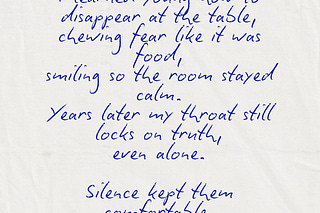 disappear at the table,
chewing fear like it was
food,
smiling so the room stayed
calm.
Years later my throat still
locks on truth,
even alone.
Silence kept them
comfortable